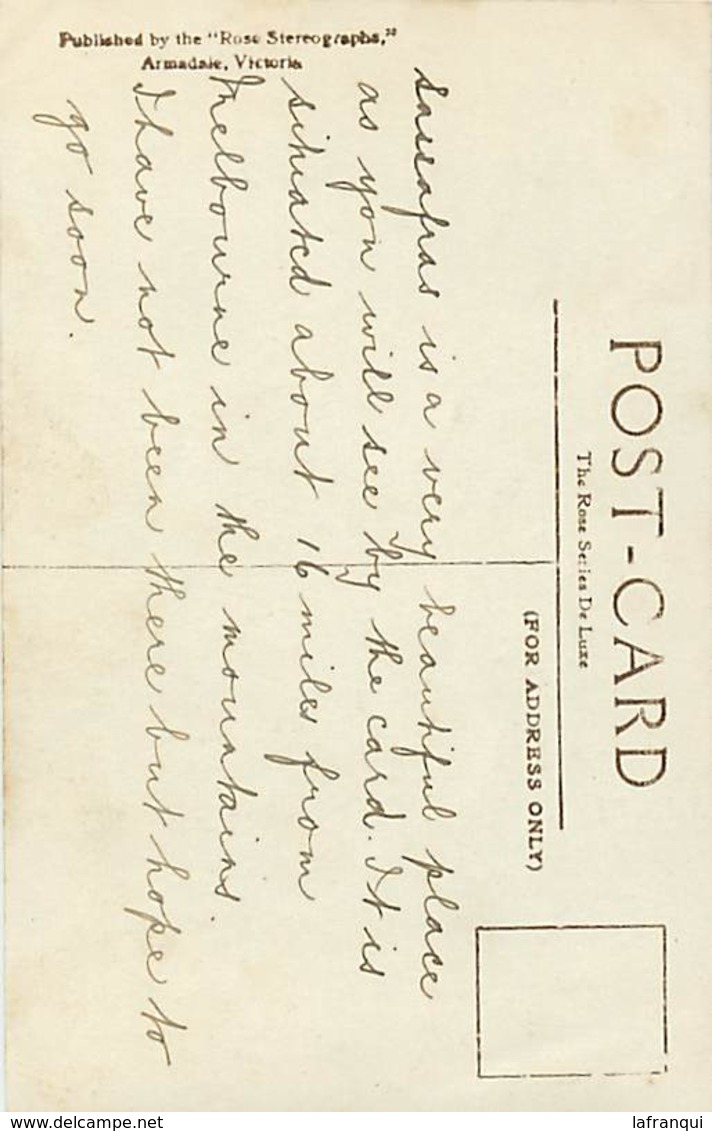 Published by the "Rose Stereographs,"
Armadale, Victoria
POST-CARD
The Rose Series De Luxe
(FOR ADDRESS ONLY)
Sassafras is a very beautiful place
as you will see by the card. It is
situated about 16 miles from
Melbourne in the mountains.
I have not been there but hope to
go soon.
delcampe.net
lafranqui